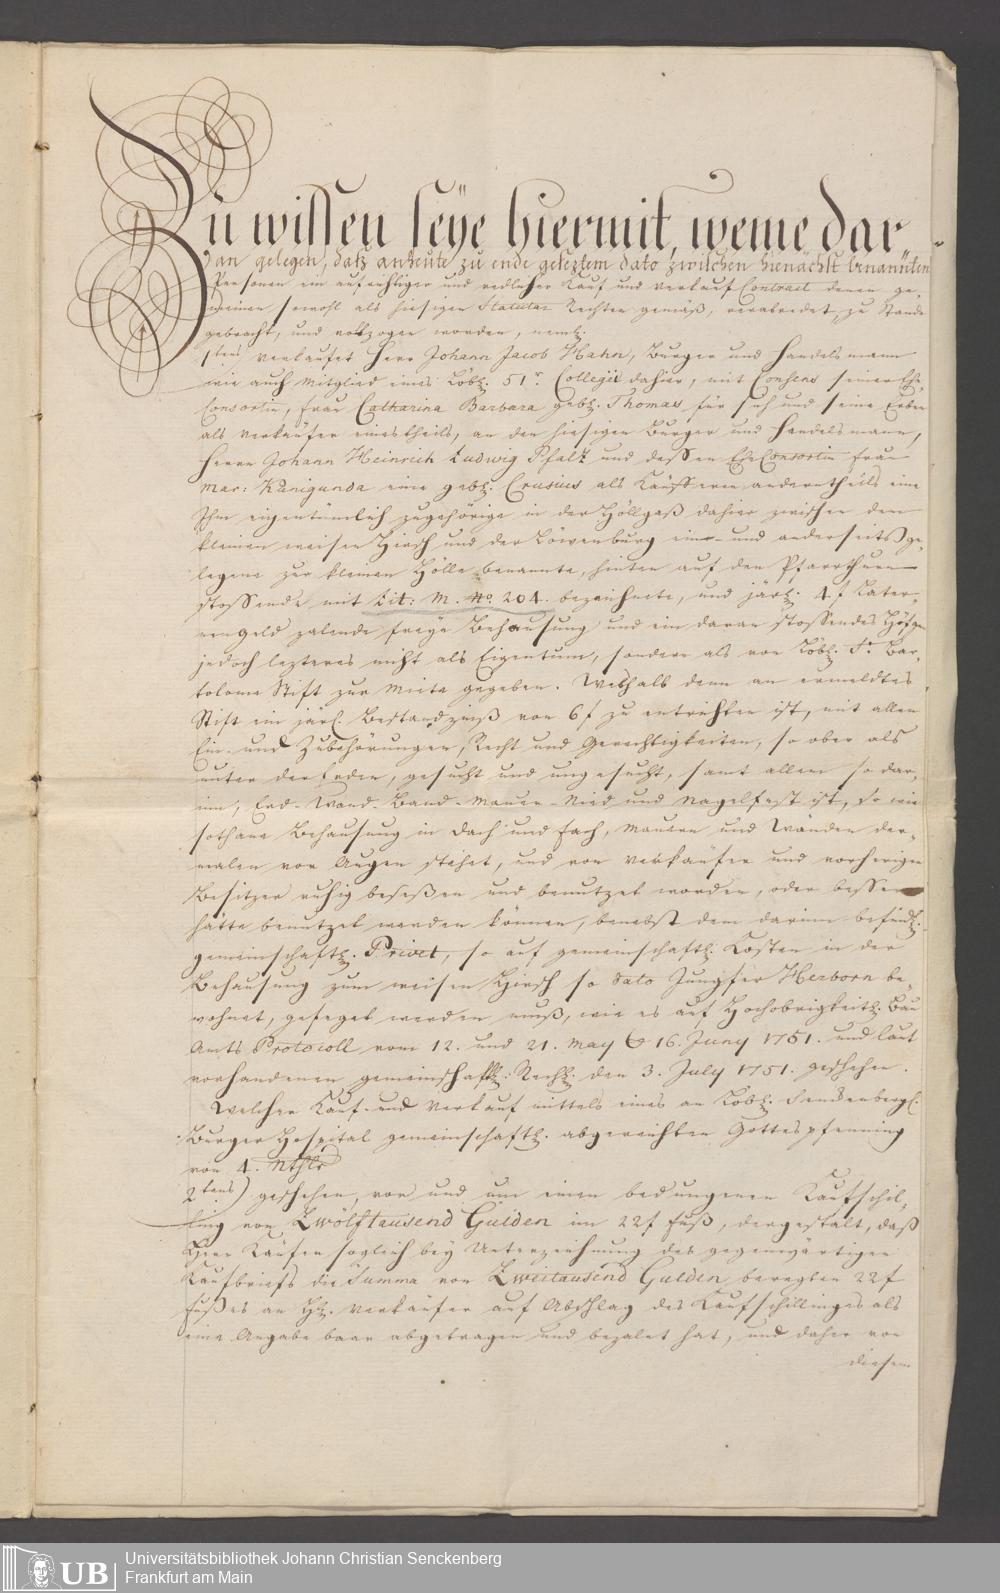 Zu wissen seye hiermit, weme dar,,
an gelegen, daß an heute zu ende geseztem dato zwischen hienächst benannten
Personen ein aufrichtiger und redlicher Kauf und Verkauf Contract denen ge,
meinen sowohl als hiesigen Statutar Rechten gemäß, verabredet, zu Stande
gebracht, und vollzogen worden, neml:
1stens verkaufet Herr Johann Jacob Hahn, Burger und Handelsmann
wie auch Mitglied eines Löbl. 51r Collegii dahier, mit Consens seiner Ehe,
Consortin, Frau Catharina Barbara gebl. Thomas für sich und seine Erben
als Verkäufer einestheils, an den hiesigen Burger und Handelsmann,
Herrn Johann Heinrich Ludwig Pfaltz und dessen Ehe Consortin Frau
Mar: Kunigunda eine gebl. Crusius als Käuffern anderntheils eine
Ihm eigentümlich zugehörige in der Höllgaß dahier zwischen dem
kleinen weisen Hirsch und der Löwenburg eins- und anderseits ge,
legene zur kleinen Hölle benannte, hinten auf den Pfarrthurn
stossende mit Lit: M. No 204. bezeichnete, und järl. 4 f Later,
nengeld zalende freye Behausung und ein daran stossendes Höfgen
jedoch lezteres nicht als Eigentum, sondern als von Löbl. St. Bar,
tolome Stift zur Miete gegeben. Weshalb denn an ermeldtes
Stift ein järl. Bestandzinß von 6 f zu entrichten ist, mit allen
Ein- und Zubehörungen, Recht und Gerechtigkeiten, so ober als
unter der Erden, gesucht und ungesucht, samt allem so dar,
inn, Erd- Wand- Band- Mauer- Nied und Nagelfest ist, so wie
sothane Behausung in Dach und Fach, Mauern und Wänden der,
malen vor Augen stehet, und von Verkäufer und vorherigen
Besitzer ruhig besessen und benutzet worden, oder besser
hätte benutzet werden können, benebst dem darinn befindl.
gemeinschaftl. Privet, so auf gemeinschaftl. Kosten in der
Behausung zum weisen Hirsch so dato Jungfer Herborn be,
wohnet, gefeget werden muß, wie es auf Hochobrigkeitl. Bau
Amts Protocoll vom 12. und 21. May & 16. Juny 1751. und laut
vorhandenen gemeinschaftl: Rechl: den 3. July 1751. geschehen.
Welcher Kauf- und Verkauf mittels eines an Löbl. Senckenbergl.
Burger Hospital gemeinschaftl. abgereichten Gottespfenning
von 4. Rthlr
2tens) geschehen, vor und um einen bedungenen Kaufschil,
ling von Zwölftausend Gulden im 22 f Fuß, dergestalt, daß
Herr Käufer soglich bey Unterzeichnung des gegenwärtigen
Kaufbriefs die Summa von Zweitausend Gulden beregten 22 f
Fußes an H. Verkäufer auf Abschlag des Kaufschillinges als
eine Angabe baar abgetragen und bezalet hat, und daher von
diesem
UB
Universitätsbibliothek Johann Christian Senckenberg
Frankfurt am Main